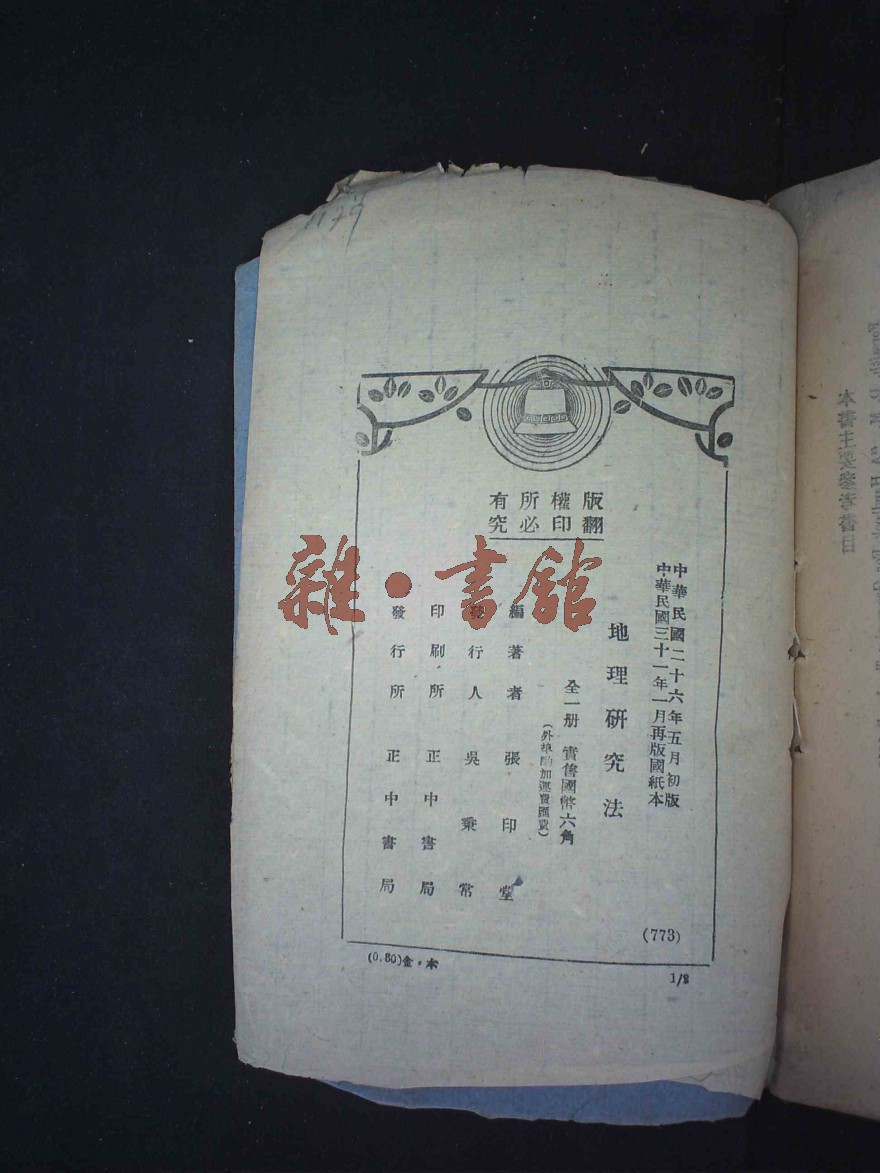 版權所有
翻印必究
中華民國二十六年五月初版
中華民國三十一年一月再版國紙本
地理研究法
全一册 實售國幣六角
(外埠酌加運費匯費)
編著者 張印堂
發行人 吳秉常
印刷所 正中書局
發行所 正中書局
(773)
(0.80)金・本
1/2
雜・書館
本書主要參考書目